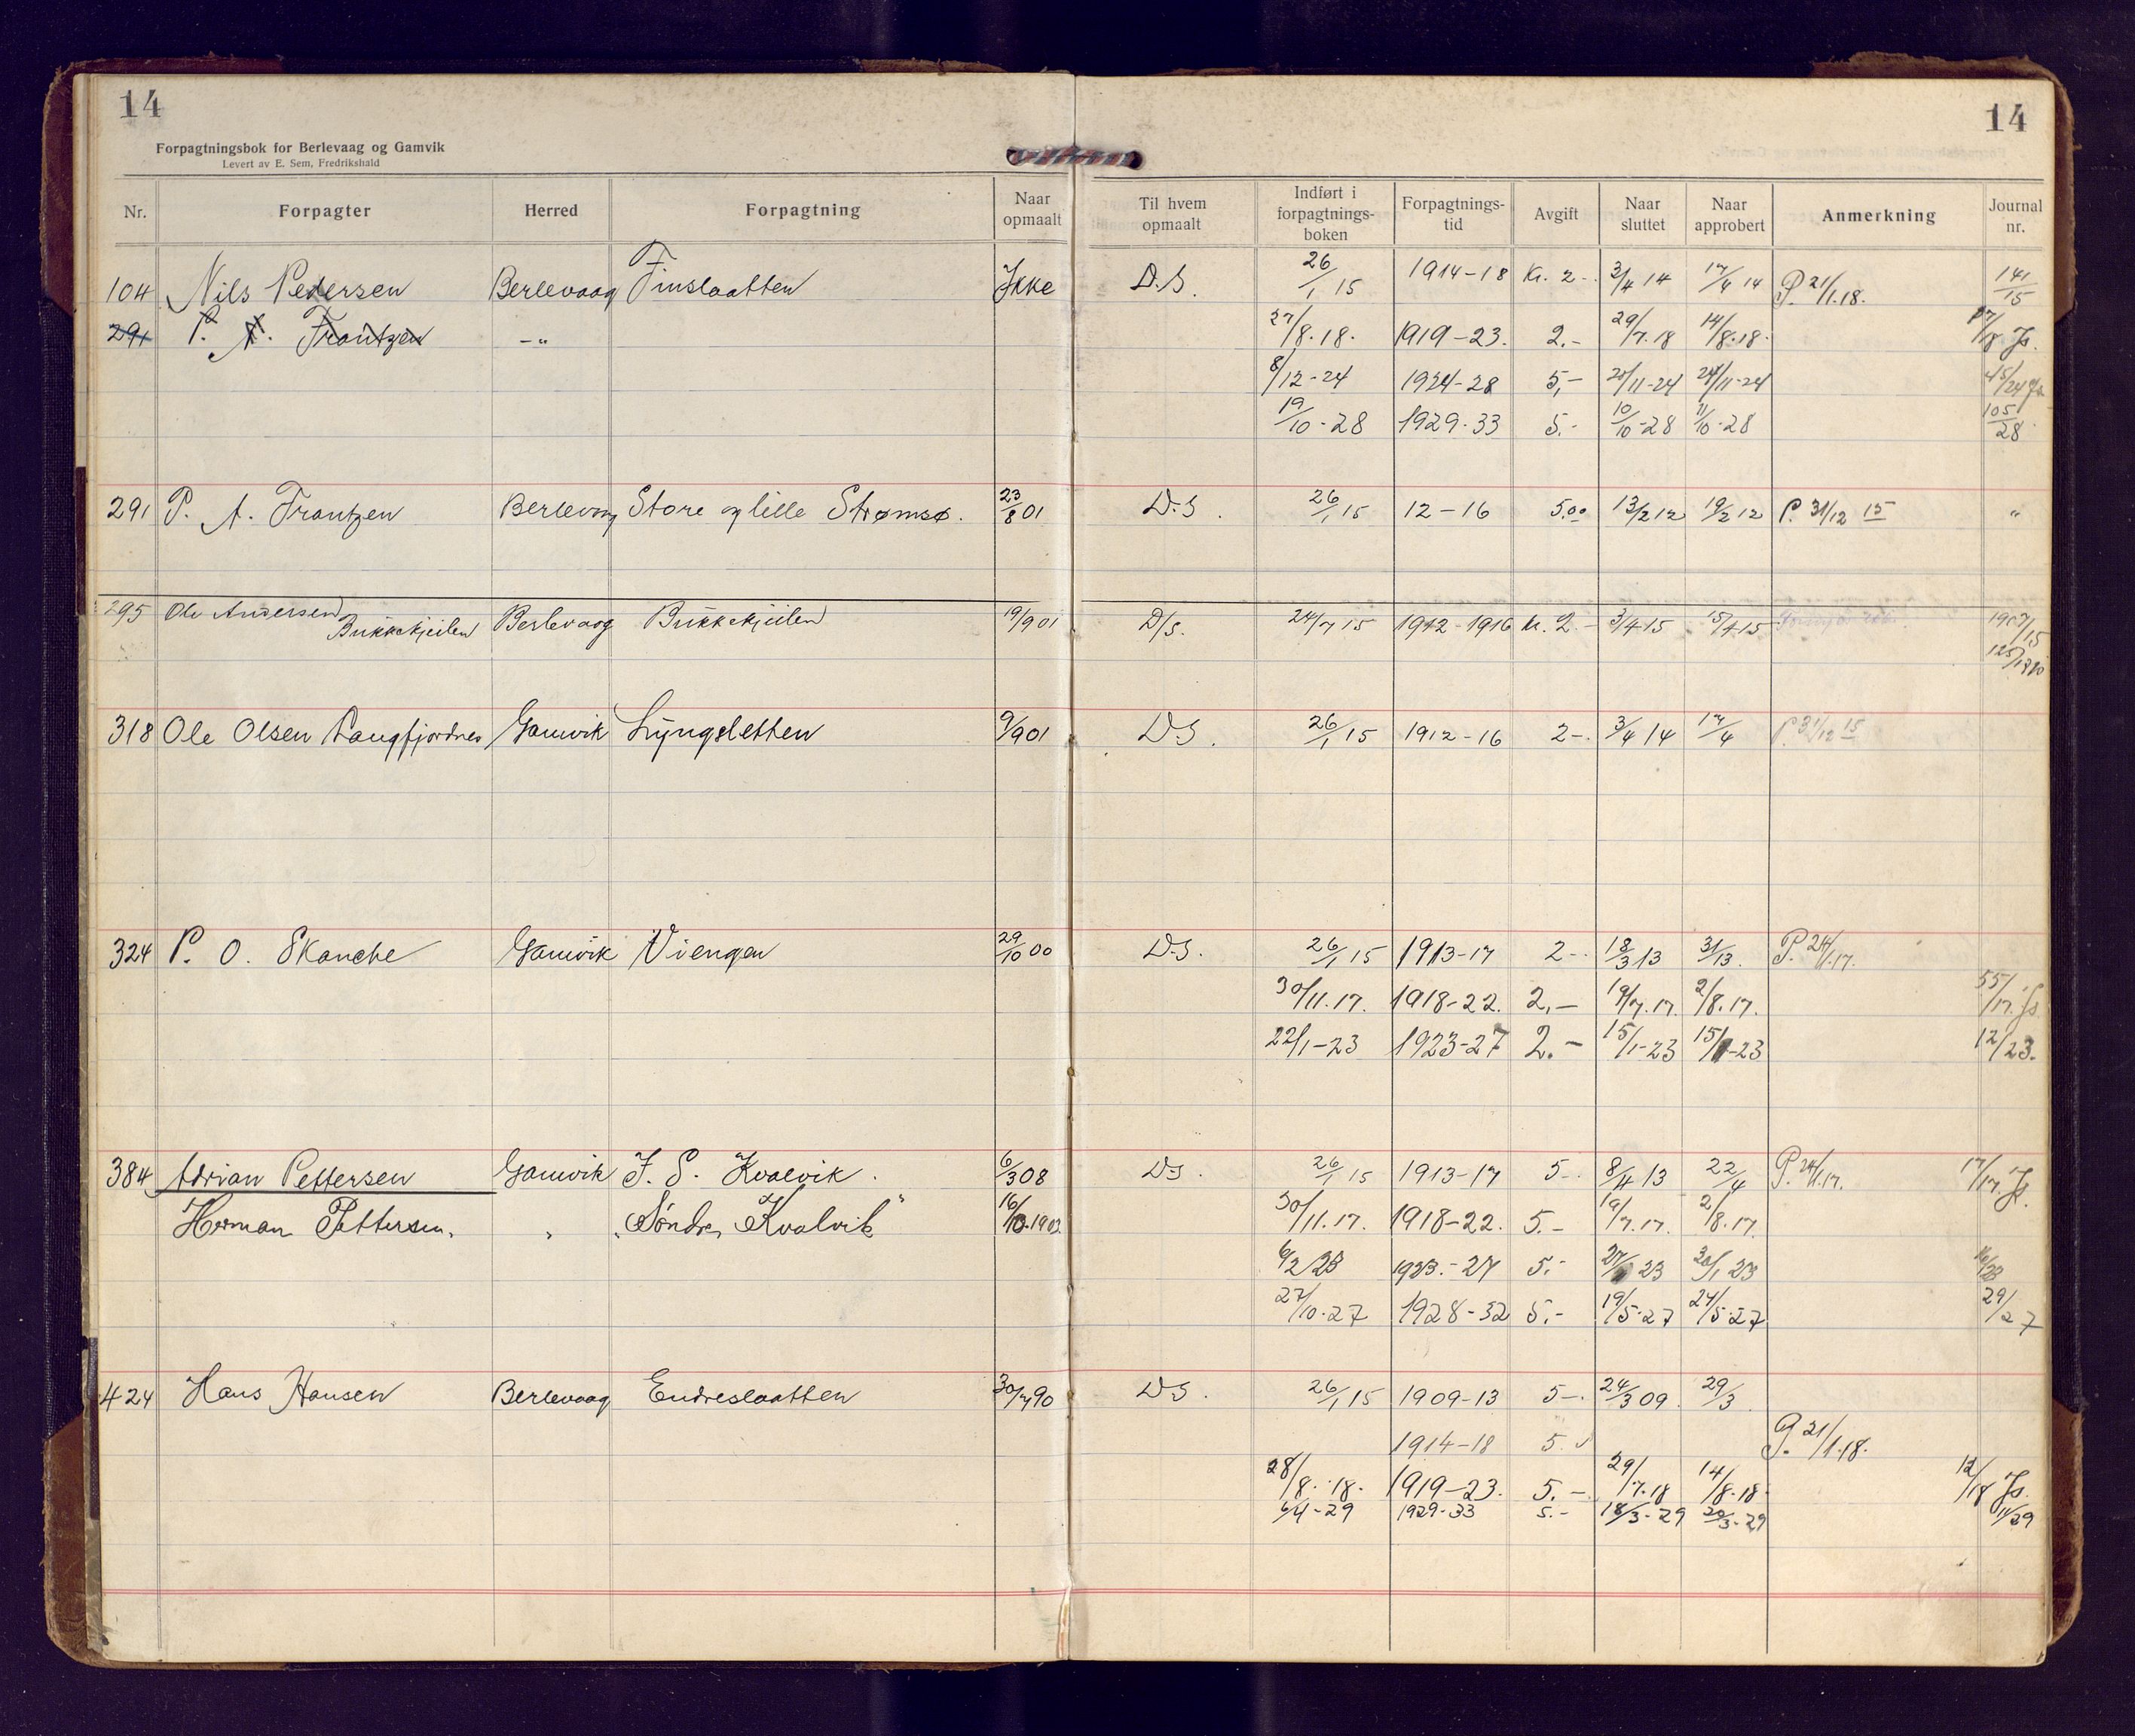 14
14
Forpagtningsbok for Berlevaag og Gamvik
Levert av E. Sem, Fredrikshald
Nr. Forpagter Herred Forpagtning Naar opmaalt Til hvem opmaalt Indført i forpagtnings-boken Forpagtnings-tid Avgift Naar sluttet Naar approbert Anmerkning Journal nr.
104 Nils Pedersen Berlevaag Finslaatten Ikke D.S. 26/1 15 1914-18 Kr. 2-. 3/4 14 17/4 14 P. 21/1.18. 141/15
291 P. A. Frantzen -"- 27/8.18. 1919-23. 2.- 29/7.18 14/8.18. 27/18 Js.
8/12-24 1924-28 5,- 20/11-24 24/11-24 45/24
19/10-28 1929-33 5.- 10/10-28 11/10-28 105/28
291 P. A. Frantzen Berlevaag Store og lille Strømsø. 23/8 01 D.S. 26/1 15 12-16 5.00 13/2 12 19/2 12 P. 31/12 15 "
295 Ole Andersen Berlevaag Bukkekjeilen 19/9 01 D/S. 24/7 15 1912-1916 kr. 2- 3/4 15 15/4 15 1907/15
Bukkekjeilen
318 Ole Olsen Langfjordnes Gamvik Lyngsletten 9/9 01 D.S. 26/1 15 1912-16 2-. 3/4 14 17/4 P. 31/12 15
324 P. O. Skanche Gamvik Viengen 29/10 00 D.S. 26/1 15 1913-17 2-. 18/3 13 31/13. P. 24/1.17.
30/11.17. 1918-22. 2,- 19/7.17. 2/8.17. 55/17. Js.
22/1-23 1923-27 2.- 15/1-23 15/1-23 12/23.
384 Adrian Pettersen Gamvik I. S. Kvalvik. 6/3 08 D.S. 26/1 15 1913-17 5-. 8/4 13 22/4 P. 24/1.17. 17/17. Js.
Herman Pettersen. " "Søndre Kvalvik" 16/10.1902. 30/11.17. 1918-22. 5.- 19/7.17. 2/8.17.
6/2 23 1923.-27 5.- 27/1 23 30/1 23 16/23
27/10-27 1928-32 5.- 19/5-27 24/5-27 29/27
424 Hans Hansen Berlevaag Endreslaatten 30/7 90 D.S. 26/1 15 1909-13 5-. 24/3 09 29/3.
1914-18 5. P. 21/1.18.
28/8.18. 1919-23. 5.- 29/7.18 14/8.18. 12/18 Js.
6/4-29 1929-33 5.- 18/3-29 20/3-29 11/29